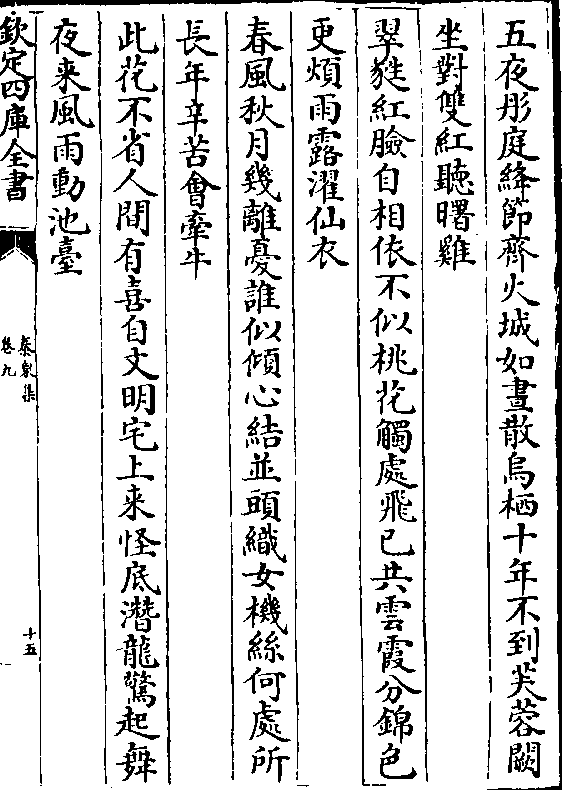 五夜彤庭絳節齊火城如晝散烏栖十年不到芙蓉闕
坐對雙紅聽曙雞
翠㲯紅臉自相依不似桃花觸處飛已共雲霞分錦色
更煩雨露濯仙衣
春風秋月幾離憂誰似傾心結並頭織女機絲何處所
長年辛苦會牽牛
此花不省人間有喜自文明宅上来怪底潛龍驚起舞
夜来風雨動池臺
欽定四庫全書
泰泉集
卷九
十五